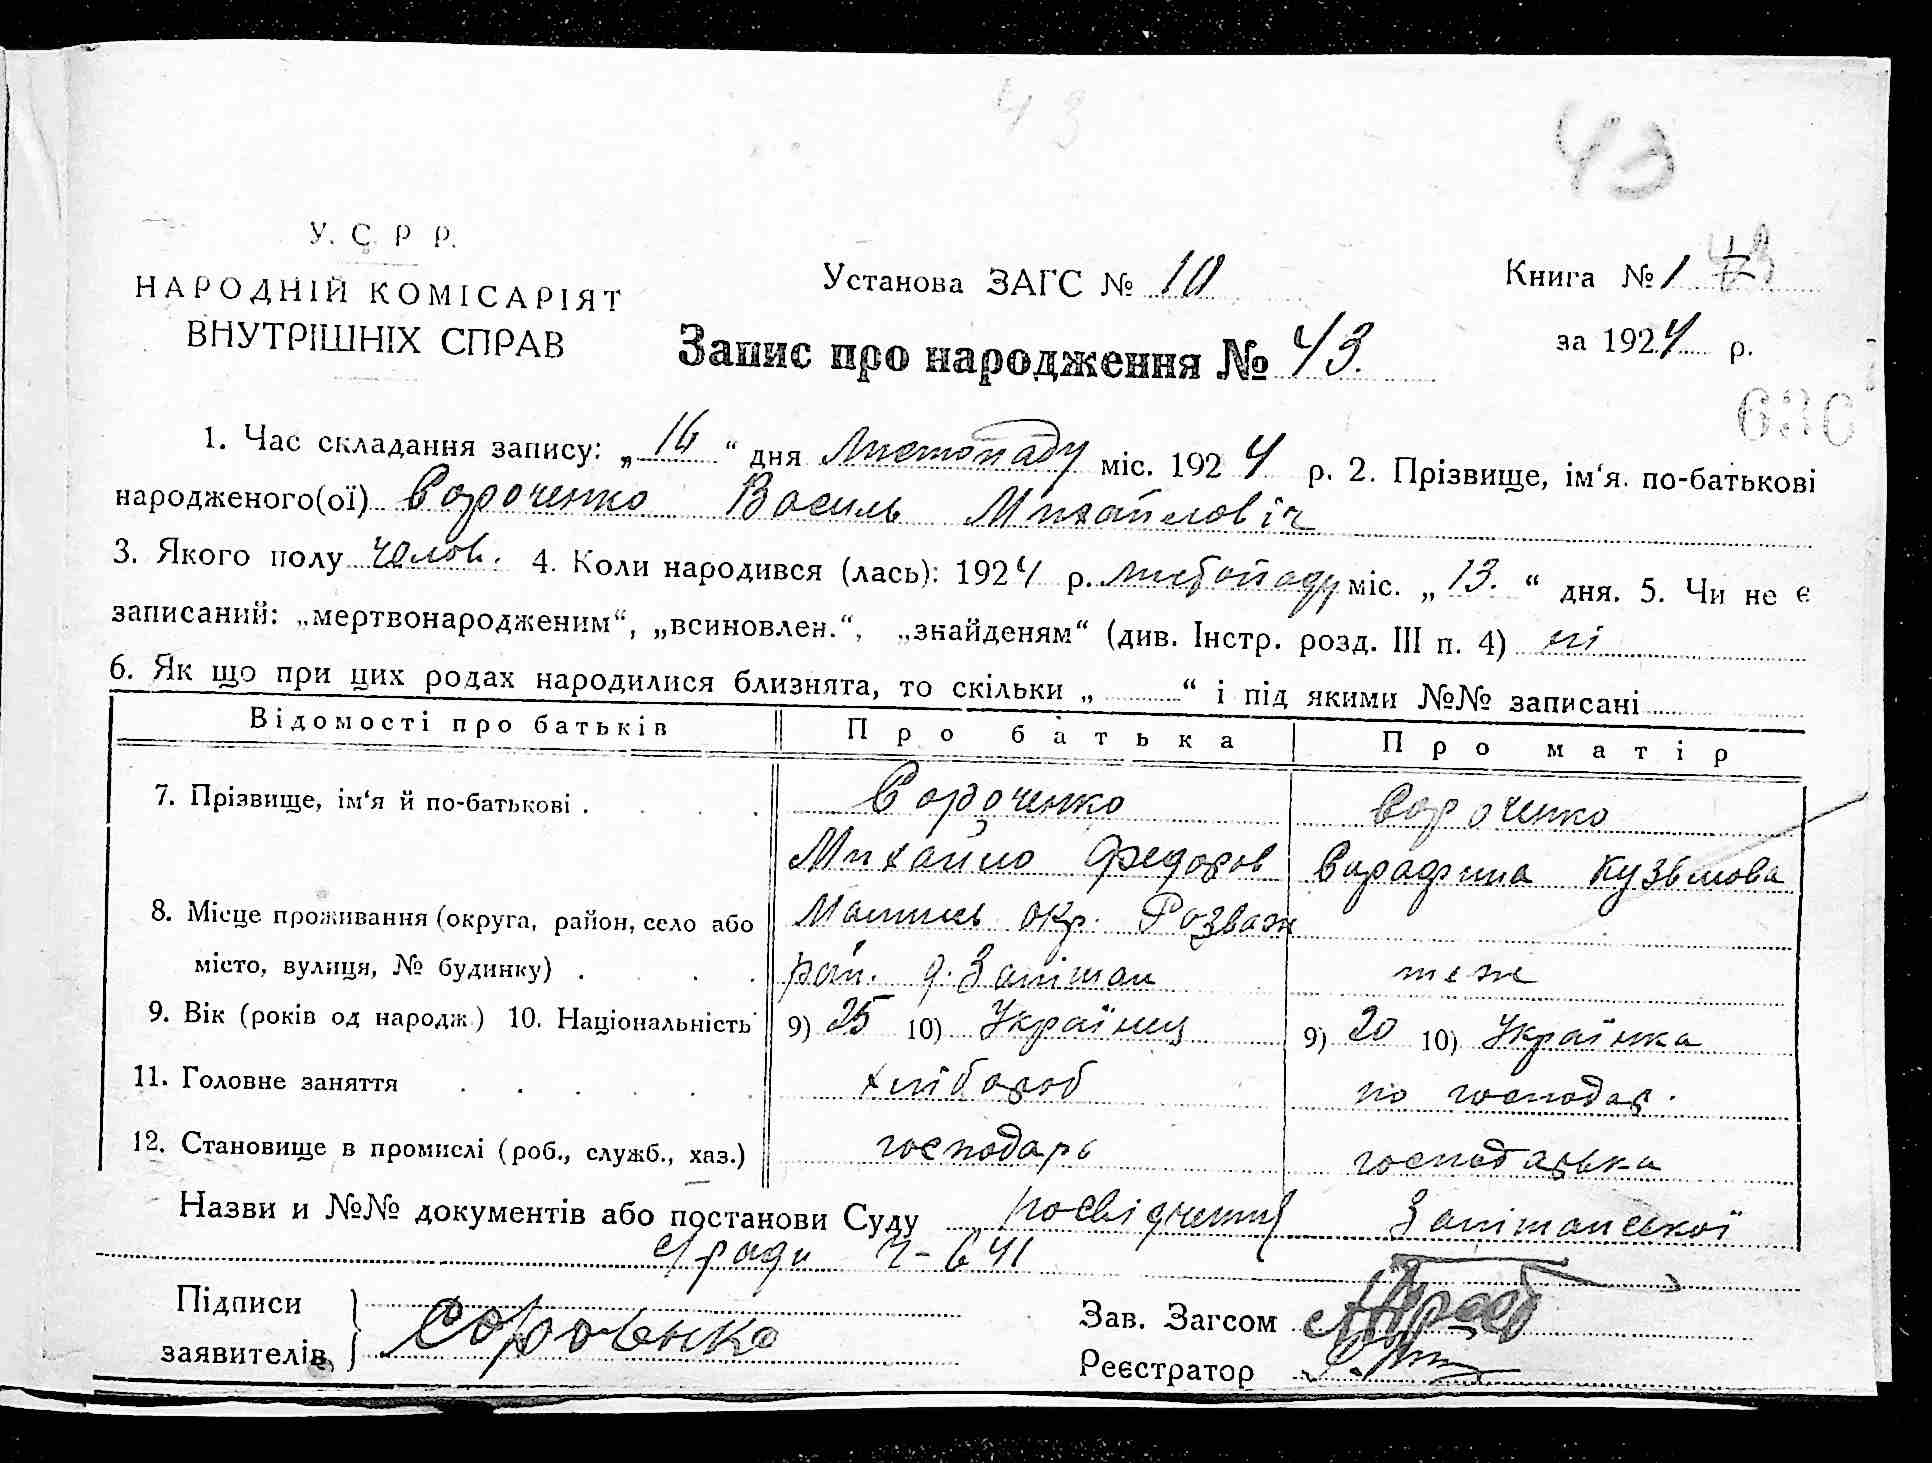 43
43
У. С. Р. Р.
НАРОДНІЙ КОМІСАРІЯТ
ВНУТРІШНІХ СПРАВ
Установа ЗАГС № 10
Книга № 1
Запис про народження № 43.
за 1924 р.
636
1. Час складання запису: „16“ дня листопаду міс. 1924 р. 2. Прізвище, ім‘я. по-батькові
народженого(ої) Сороченко Василь Михайловіч
3. Якого полу челов. 4. Коли народився (лась): 1924 р. листопаду міс. „13.“ дня. 5. Чи не є
записаний: „мертвонародженим“, „всиновлен.“, „знайденям“ (див. Інстр. розд. III п. 4) ні
6. Як що при цих родах народилися близнята, то скільки „ “ і під якими №№ записані
Відомості про батьків Про батька Про матір
7. Прізвище, ім‘я й по-батькові . Сороченко Сороченко
Михайло Федоров Кузьмова
8. Місце проживання (округа, район, село або Малинск окр. Розваж
місто, вулиця, № будинку) . рай. теж
9. Вік (років од народж.) 10. Національність 9) 25 10) Українец 9) 20 10) Українка
11. Головне заняття хлібороб по господар.
12. Становище в промислі (роб., служб., хаз.) господарь господарька
Назви и №№ документів або постанови Суду посвідчення
с/ради ч-641
Підписи
заявителів Сороченко
Зав. Загсом
Реєстратор